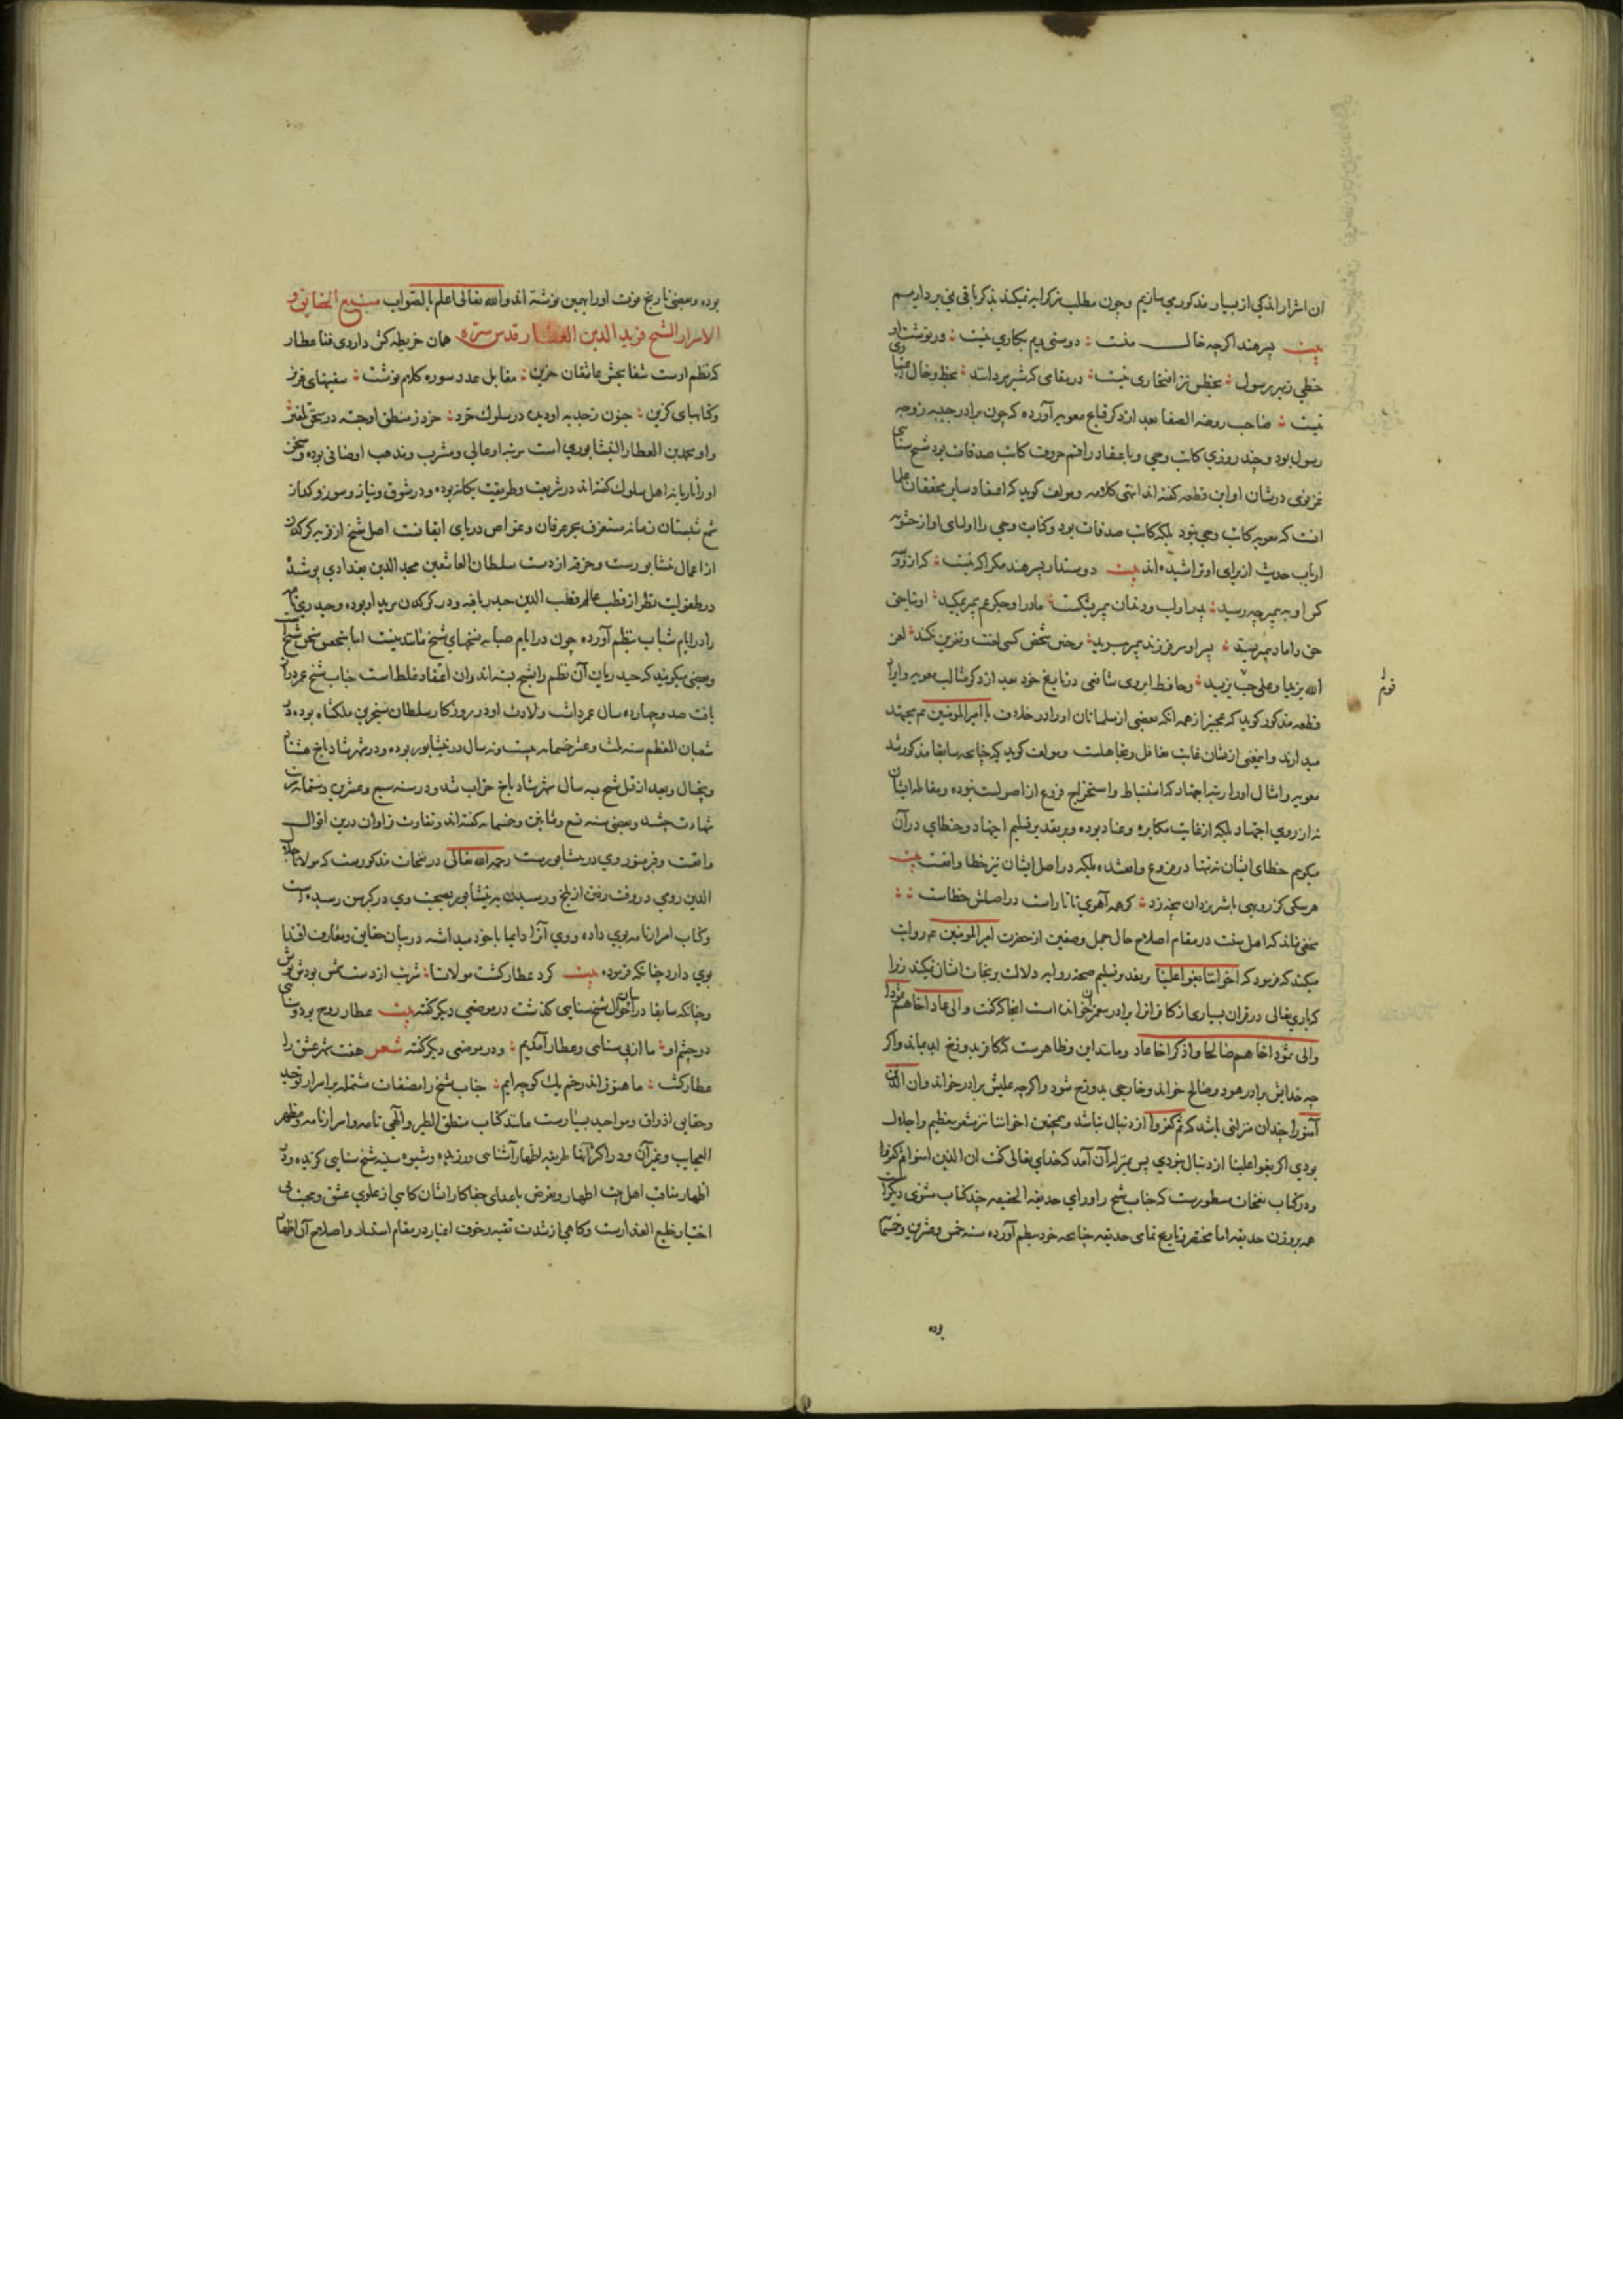 ان اشرار اندکی از بسیار مذکور می سازیم و چون مطلب تذکر ایه نمیکند بذکر باقی نمی پردازیم
بیت پسر هند اگرچه خال منست : دوستی ویم بکاری نیست : ور نوشت او
خطی ز بهر رسول : بخطش نیز افتخاری نیست : در مقامی که شیر مردانند : بخط و خال
نیست : صاحب روضه الصفا بعد از ذکر وقایع معویه آورده که چون برادر حبیبه زوجه
رسول بود و چند روزی کاتب وحی و باعتقاد راقم حروف کاتب صدقات بود شیخ سنایی
غزنوی در شان او این قطعه گفته اند انتهی کلامه و مولف گوید که اعتقاد سایر محققان علما
انست که معویه کاتب وحی نبود بلکه کاتب صدقات بود و کتابت وحی را اولیای او از حشویه
ارباب حدیث از برای او تراشیده اند بیت دوستدار پسر هند مگر اگه نیست : که از و و
کس او به پیمبر چه رسید : پدر او لب و دندان پیمبر بشکست : مادر او جگر عم پیمبر بمکید : او بناحق
حق داماد پیمبر بستد : پسر او سر فرزند پیمبر ببرید : بر چنین شخص کسی لعنت و نفرین نکند : لعن
الله یزیدا و علی حب یزید : و حافظ ابروی شافعی در تاریخ خود بعد از ذکر مثالب معویه و ایراد
قطعه مذکور گوید که عجبتر از همه انکه بعضی از مسلمانان او را در خلاف با امیرالمومنین ع م مجتهد
میدارند و اینمعنی از شان غایت تغافل و تجاهلست و مولف گوید که چنانچه سابقا مذکور شد
معویه و امثال او را رتبه اجتهاد که استنباط و استخراج فروع از اصولست نبوده و مقاتله ایشان
نه از روی اجتهاد بلکه از غایت مکابره و عناد بوده و بر تقدیر تسلیم اجتهاد و خطای در آن
میگویم خطای ایشان نه تنها در فروع واقعشده بلکه در اصل ایشان نیز خطا واقعست بیت
هر سگی کز روبهی با شیر یزدان پنجه زد : گر همه آهوی تاتارست در اصلش خطاست : :
مخفی نماند که اهل سنت در مقام اصلاح حال جمل و صفین از حضرت امیرالمومنین ع م روایت
میکنند که فرمود که اخواننا بغوا علینا و بتقدیر تسلیم صحه روایه دلالت بر نجات ایشان نمیکند زیرا
که باری تعالی در قران بسیاری از کافرانرا برادر پیغمبر خوانده است انجا که گفت و الی عاد اخاهم هودا
و الی ثمود اخاهم صالحا و اذکر اخا عاد و مانند این و ظاهرست که کافر بدوزخ ابد بماند و اگر
چه خدایش برادر هود و صالح خواند و خارجی بدوزخ شود و اگرچه علیش برادر خواند و ان الذین
آمنوا چندان منزلتی باشد که ثم کفروا از دنبال نباشد و همچنین اخواننا نیز مشعر تعظیم و اجلال
بودی اگر بغوا علینا از دنبال نبودی پس بمنزله آن آمد که خدای تعالی گفت ان الذین امنوا ثم کفروا
و در کتاب نفحات مسطورست که جناب شیخ را ورای حدیقه الحقیقه چند کتاب مثنوی دیگرست
همه بر وزن حدیقه اما مختصر و تاریخ تمامی حدیقه چنانچه خود بنظم آورده سنه خمس و عشرین و خمسمایه
بوده
بوده و بعضی تاریخ فوت او را همین نوشته اند و الله تعالی اعلم بالصواب منبع الحقایق و
الاسرار الشیخ فرید الدین العطار قدس سره همان خریطه کش داروی فنا عطار
که نظم اوست شفا بخش عاشقان حزین : مقابل عدد سوره کلام نوشت : سفینهای عزیز
و کتابهای گزین : جنون ز جذبه او دیده در سلوک خرد : خرد ز منطق او جسته در سخن تلقین
و او محمد بن العطار النیشابوری است مرتبه او عالی و مشرب و مذهب او صافی بوده و سخن
او را تازیانه اهل سلوک گفته اند در شریعت و طریقت یگانه بوده و در شوق و نیاز و سوز و گداز
شمع شبستان زمانه مستغرق بحر عرفان و غواص دریای ایقانست اصل شیخ از قریه کدکن
از اعمال نیشابورست و خرقه از دست سلطان العاشقین مجد الدین بغدادی پوشیده
در طفولیت نظر از قطب عالم قطب الدین حیدر یافته و در کدکن مرید او بوده و حیدری نامه
را در ایام شباب بنظم آورده چون در ایام صبا به سخنهای شیخ مانند نیست اما بتحقیق سخن شیخ است
و بعضی میگویند که حیدریان آن نظم را بشیخ بسته اند و ان اعتقاد غلط است جناب شیخ عمر دراز
یافت صد و چهارده سال عمر داشت ولادت او در روزگار سلطان سنجر بن ملکشاه بوده در
شعبان المعظم سنه ثلث و عشر خمسمایه بیست و نه سال در نیشابور بوده و در شهر شادیاخ هشتاد
و پنجسال و بعد از قتل شیخ سه سال شهر شادیاخ خراب شد و در سنه سبع و عشرین و ستمایه شربت
شهادت چشیده و بعضی سنه تسع و ثمانین و خمسمایه گفته اند و تفاوت فراوان درین اقوال
واقعست و قبر منور وی در نیشابورست رحمه الله تعالی در نفحات مذکورست که مولانا جلال
الدین رومی در وقت رفتن از بلخ و رسیدن به نیشابور بصحبت وی در کبر سن رسیده است
و کتاب اسرارنامه بوی داده و وی آنرا دایما با خود میداشته در بیان حقایق و معارف اقتدا
بوی دارد چنانکه فرموده بیت گرد عطار گشت مولانا : شربت از دست شمس بودش نوش
و چنانکه سابقا در بیان احوال شیخ سنایی گذشت در موضعی دیگر گفته بیت عطار روح بود و سنایی
دو چشم او : ما از پی سنایی و عطار آمدیم : و در موضعی دیگر گفته شعر هفت شهر عشق را
عطار گشت : ما هنوز اندر خم یک کوچه ایم : جناب شیخ را مصنفات مشتمله بر اسرار توحید
و حقایق اذواق و مواجید بسیارست مانند کتاب منطق الطیر و الهی نامه و اسرارنامه و مظهر
العجایب و غیر آن و در اکثر آنها طریقه اظهار آشنایی ورزیده و شیوه سنیه شیخ سنایی گزیده و در
اظهار مناقب اهل بیت اطهار و تعرض باعدای جفاکار ایشان گاهی از علوی عشق و محبت بی
اختیار خلیع العذارست و گاهی از شدت تقیه و خوف اغیار در مقام استتار و اصلاح آن اظهار